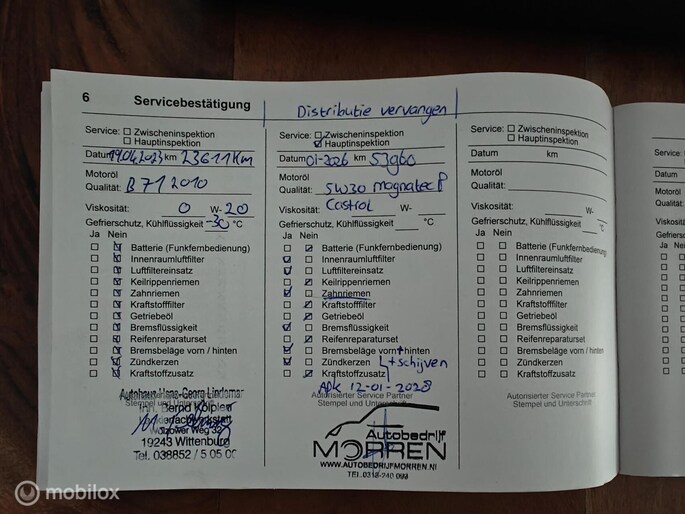 6 Servicebestätigung
Distributie vervangen
Service: Zwischeninspektion
Hauptinspektion
Datum 19.04.2023 km 23611 Km
Motoröl
Qualität: B 71 2010
Viskosität: 0 W- 20
Gefrierschutz, Kühlflüssigkeit -30 °C
Ja Nein
Batterie (Funkfernbedienung)
Innenraumluftfilter
Luftfiltereinsatz
Keilrippenriemen
Zahnriemen
Kraftstofffilter
Getriebeöl
Bremsflüssigkeit
Reifenreparaturset
Bremsbeläge vorn / hinten
Zündkerzen
Kraftstoffzusatz
Autohaus Hans-Georg Lindemar
Stempel und Unterschrift
Inh. Bernd
19243 Wittenburg
Tel. 038852 / 5 05 00
Service: Zwischeninspektion
Hauptinspektion
Datum 01-2026 km 53960
Motoröl
Qualität: 5W30 magnatec P
Castrol
Viskosität: W-
Gefrierschutz, Kühlflüssigkeit °C
Ja Nein
Batterie (Funkfernbedienung)
Innenraumluftfilter
Luftfiltereinsatz
Keilrippenriemen
Zahnriemen
Kraftstofffilter
Getriebeöl
Bremsflüssigkeit
Reifenreparaturset
Bremsbeläge vorn + hinten
Zündkerzen + schijven
Kraftstoffzusatz
APK 12-01-2028
Autorisierter Service Partner
Stempel und Unterschrift
Autobedrijf
MORREN
WWW.AUTOBEDRIJFMORREN.NL
TEL. 0318-240 099
Service: Zwischeninspektion
Hauptinspektion
Datum km
Motoröl
Qualität:
Viskosität: W-
Gefrierschutz, Kühlflüssigkeit °C
Ja Nein
Batterie (Funkfernbedienung)
Innenraumluftfilter
Luftfiltereinsatz
Keilrippenriemen
Zahnriemen
Kraftstofffilter
Getriebeöl
Bremsflüssigkeit
Reifenreparaturset
Bremsbeläge vorn / hinten
Zündkerzen
Kraftstoffzusatz
Autorisierter Service Partner
Stempel und Unterschrift
Service:
Datum
Motoröl
Qualität:
Viskosität:
Gefrierschutz
Ja Nein
mobilox